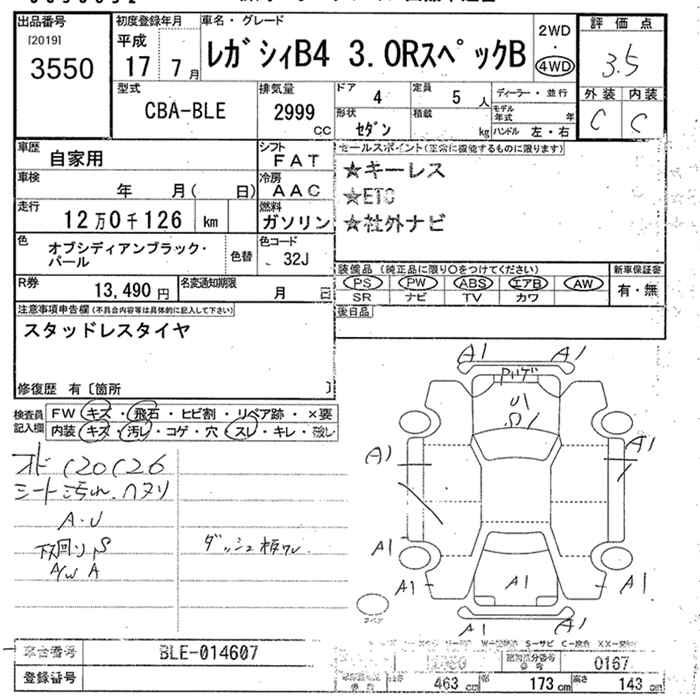 出品番号 [2019] 3550
初度登録年月 平成 17 7月
車名・グレード レガシィB4 3.0RスペックB
2WD・4WD
評価点 3.5
型式 CBA-BLE
排気量 2999 CC
ドア 4
定員 5 人
ディーラー・並行
形状 セダン
積載 kg
モデル年式 年
ハンドル 左・右
外装 C
内装 C
車歴 自家用
シフト FAT
セールスポイント(正常に機能するものに限ります)
車検 年 月( 日)
冷房 AAC
★キーレス
★ETC
★社外ナビ
走行 12万0千126 km
燃料 ガソリン
色 オブシディアンブラック・パール
色替
色コード 32J
装備品 (純正品に限り○をつけてください)
新車保証書 有・無
PS PW ABS エアB AW
SR ナビ TV カワ
R券 13,490円
名変通知期限 月 日
後日品
注意事項申告欄(不具合内容等は具体的に記入して下さい)
スタッドレスタイヤ
修復歴 有〔箇所 〕
検査員記入欄
FW キズ・飛石・ヒビ割・リペア跡・×要
内装 キズ・汚レ・コゲ・穴・スレ・キレ・破レ
シート汚れ
A・U
下回りS
A/W A
A1 A1
A1 A1
A1
A1 A1 A1
A1 A1
車台番号 BLE-014607
登録番号
0167
463 cm 幅 173 cm 高さ 143 cm